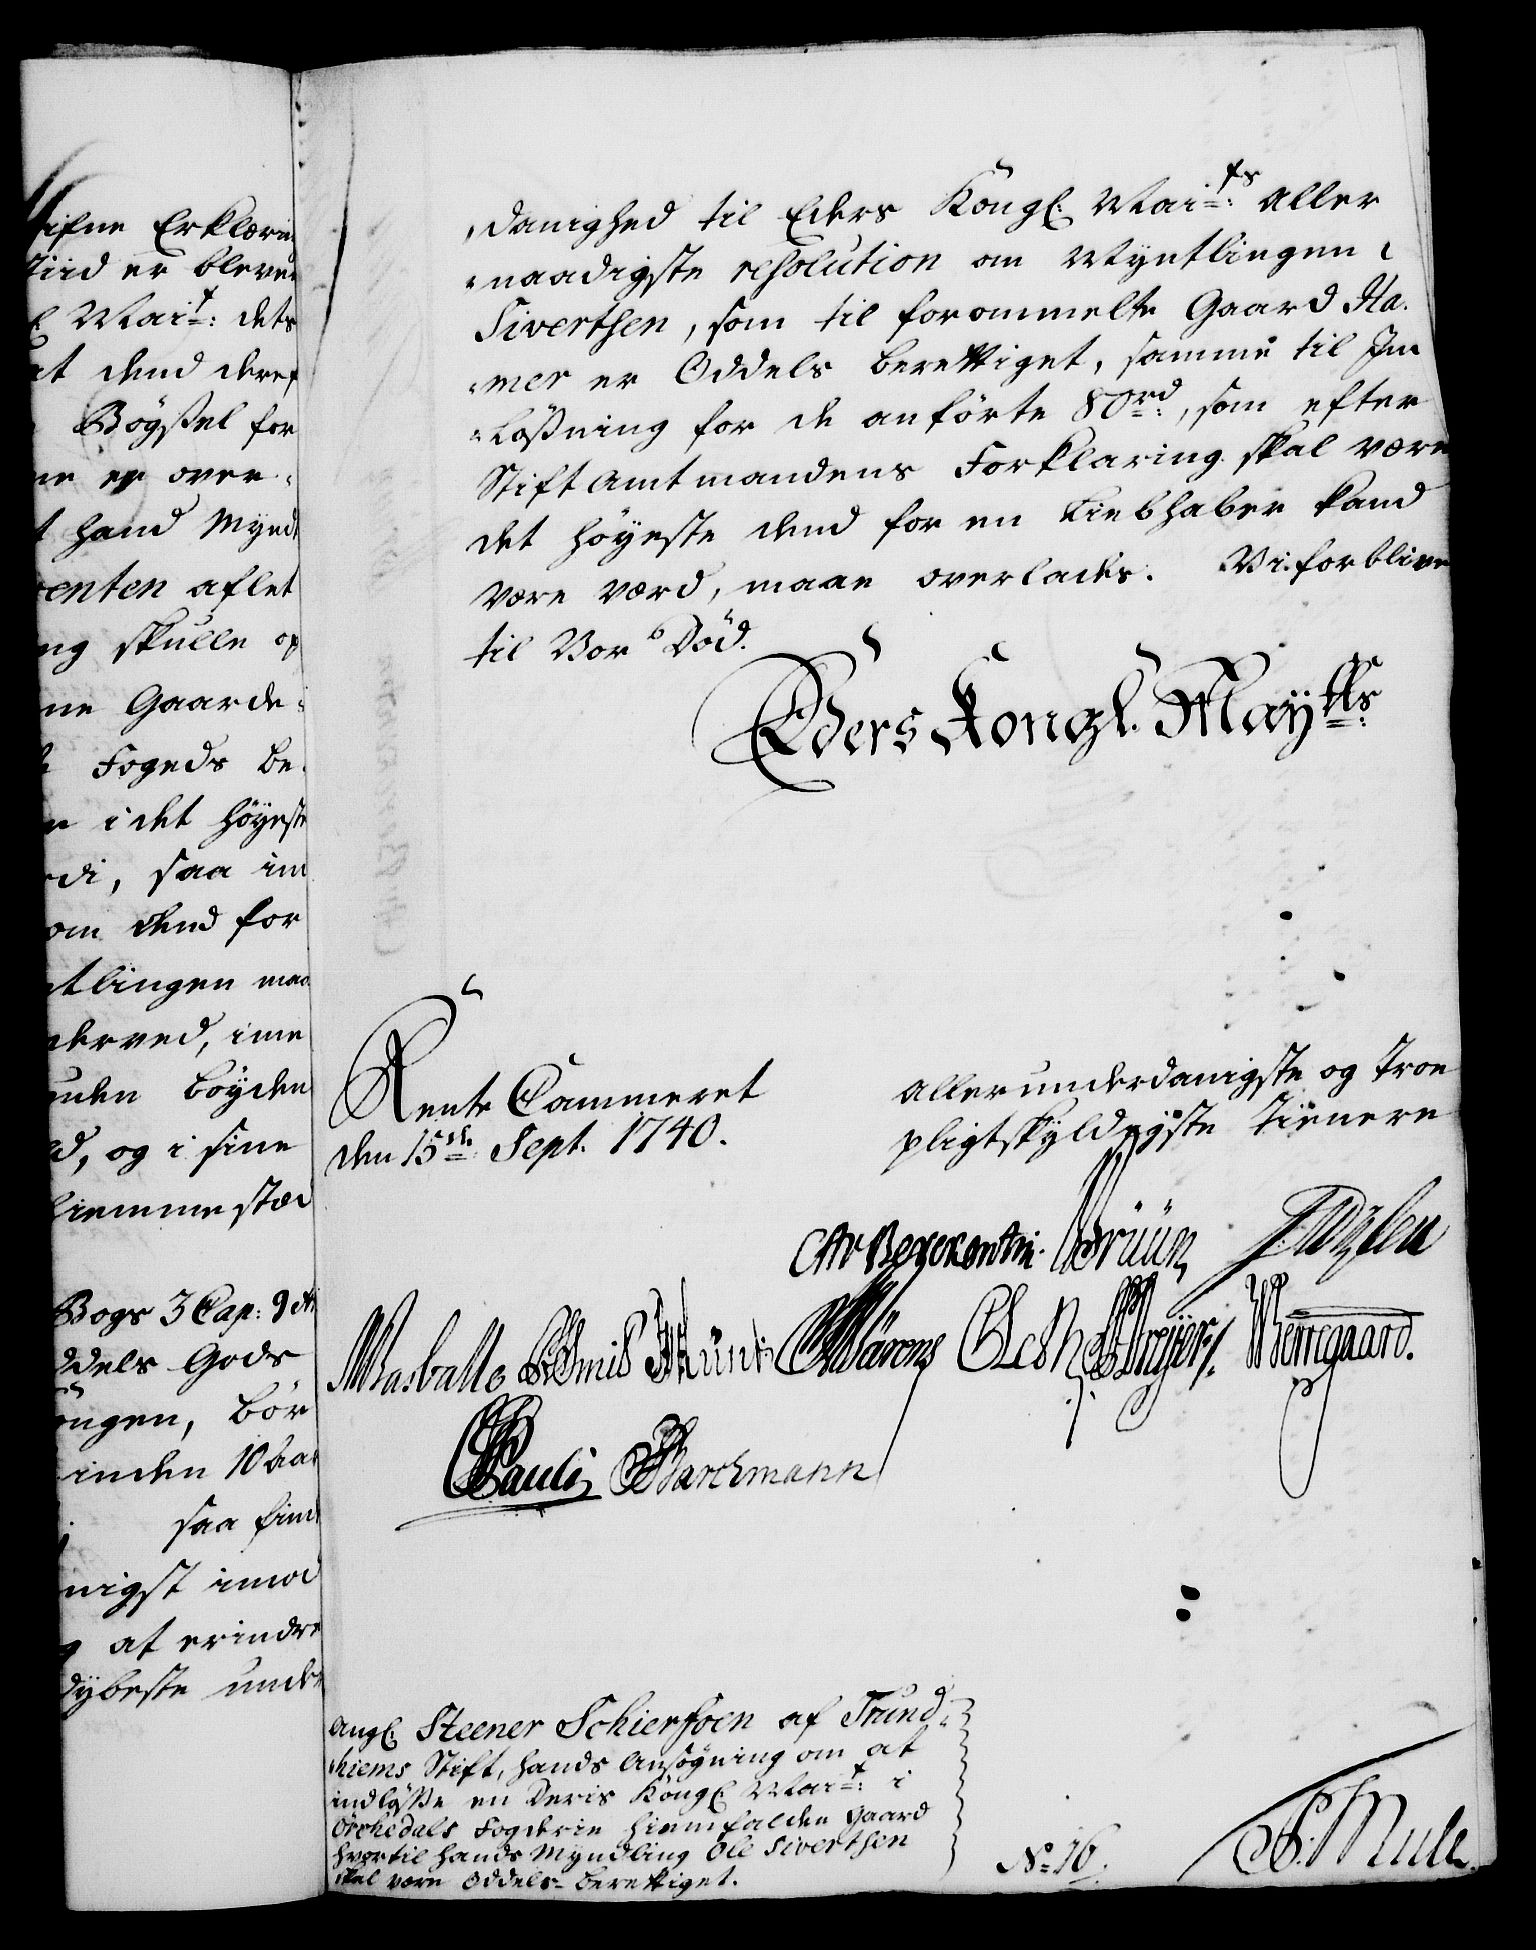 ifne Erklærin
tiid er bleven
Mait: dets
at dend deref
Böyßel for
ne er over-
t hand Mynd
enten aflet
ng skulle op
ne Gaarde-
Fogeds be-
i det höyeste
rdi, saa im
om dend for
tlingen maa
derved, ime
nden böyden
d, og i sine
hiemme stæd
Bogs 3 Cap: 9 Ar
ddels Gods
ongen, bör
inden 10 Aar
saa find
nigst imod
at erindre
dybeste unde
danighed til Eders Kongl: Maits: aller
naadigste resolution om Myntlingen
Sivertsen, som til forommelte Gaard Ha-
mer er Oddels berettiget, samme til Jnd
lößning for de anförte 80rd:, som efter
Stift Amtmandens Forklaring skal være
det höyeste dend for en Liebhaber kand
være værd, maae overlades. Vi forblive
til Vor Död.
Eders Kongl. Mayts:
Rente Cammeret
den 15de Sept. 1740.
allerunderdanigste og Troe
pligtskyldigste tienere
CAv Berckentin. Brüün
Wasballe Münt Ceth Dreyer Wennegaard.
Pauli Barchmann
angl: Steener Schiersoen af Trund-
hiems Stift, hands Ansögning om at
indlöße en Deris Kongl: Mait: i
Orchedals Fogderie hiemfalden gaard
hvortil hands Myndling Ole Sivertsen
skal være Oddels-berettiget.
No 16.
Mule